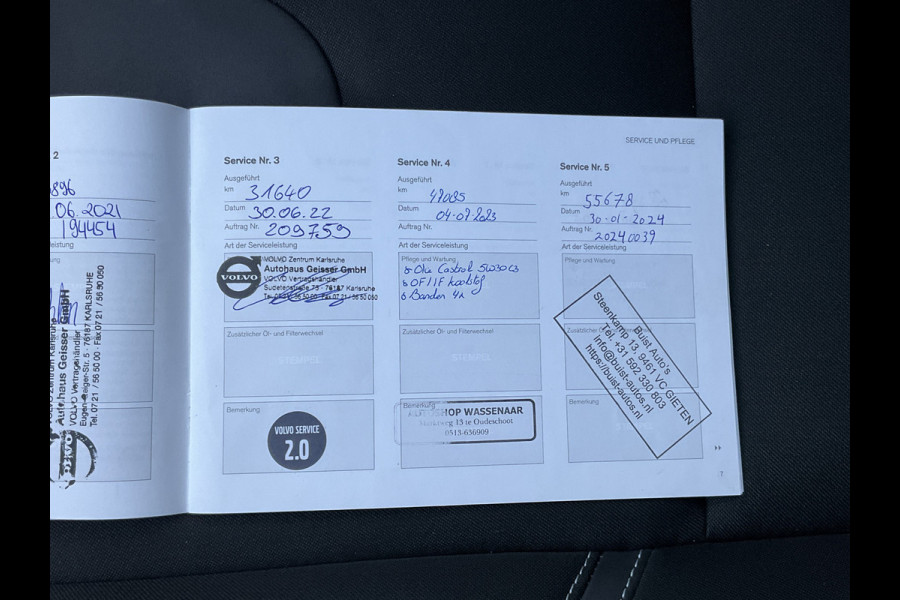 2
.06.2021
194454
eistung
Autohaus Geisser GmbH
VOLVO Vertragshändler
Eugen-Geiger-Str. 5 · 76187 KARLSRUHE
Tel. 07 21 / 56 50 00 · Fax 07 21 / 56 50 050
SERVICE UND PFLEGE
Service Nr. 3
Ausgeführt
km 31640
Datum 30.06.22
Auftrag Nr. 209759
Art der Serviceleistung
VOLVO
VOLVO Zentrum Karlsruhe
Autohaus Geisser GmbH
VOLVO Vertragshändler
Sudetenstraße 73 - 76187 Karlsruhe
Zusätzlicher Öl- und Filterwechsel
STEMPEL
Bemerkung
VOLVO SERVICE
2.0
Service Nr. 4
Ausgeführt
km
Datum
Auftrag Nr.
Art der Serviceleistung
Pflege und Wartung
Olie Castrol 5W30 C3
Banden 4x
Zusätzlicher Öl- und Filterwechsel
STEMPEL
Bemerkung
WASSENAAR
13 te Oudeschoot
0513-636909
Service Nr. 5
Ausgeführt
km 55678
Datum 30-01-2024
Auftrag Nr. 20240039
Art der Serviceleistung
Pflege und Wartung
Buist Auto's
Steenkamp 13, 9461 VC GIETEN
Tel. +31 592 330 803
info@buist-autos.nl
https://buist-autos.nl
Bemerkung
7